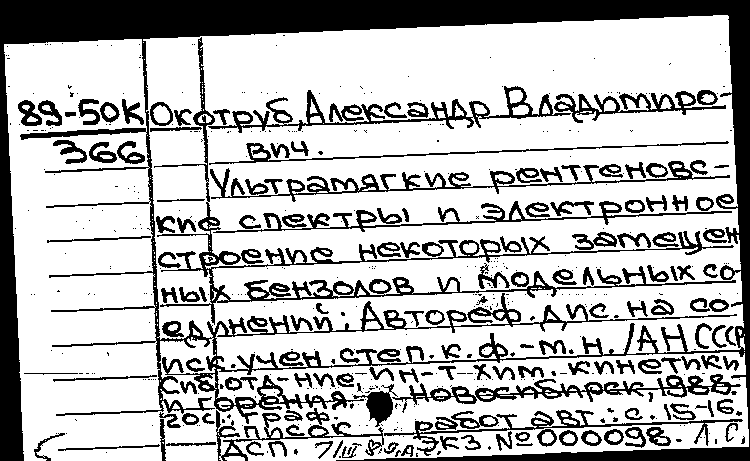 89-50К Окотруб, Александр Владимиро-
366 вич.
Ультрамягкие рентгеновс-
кие спектры и электронное
строение некоторых замещен
ных бензолов и модельных со-
единений: Автореф. дис. на со-
иск. учен. степ. к. ф.-м. н. / АН СССР
Сиб. отд-ние, ин-т хим. кинетики
и горения. Новосибирск, 1988-
20с.: граф.
список работ авт.: с. 15-16.
ДСП. Экз. №000098. Л. С.